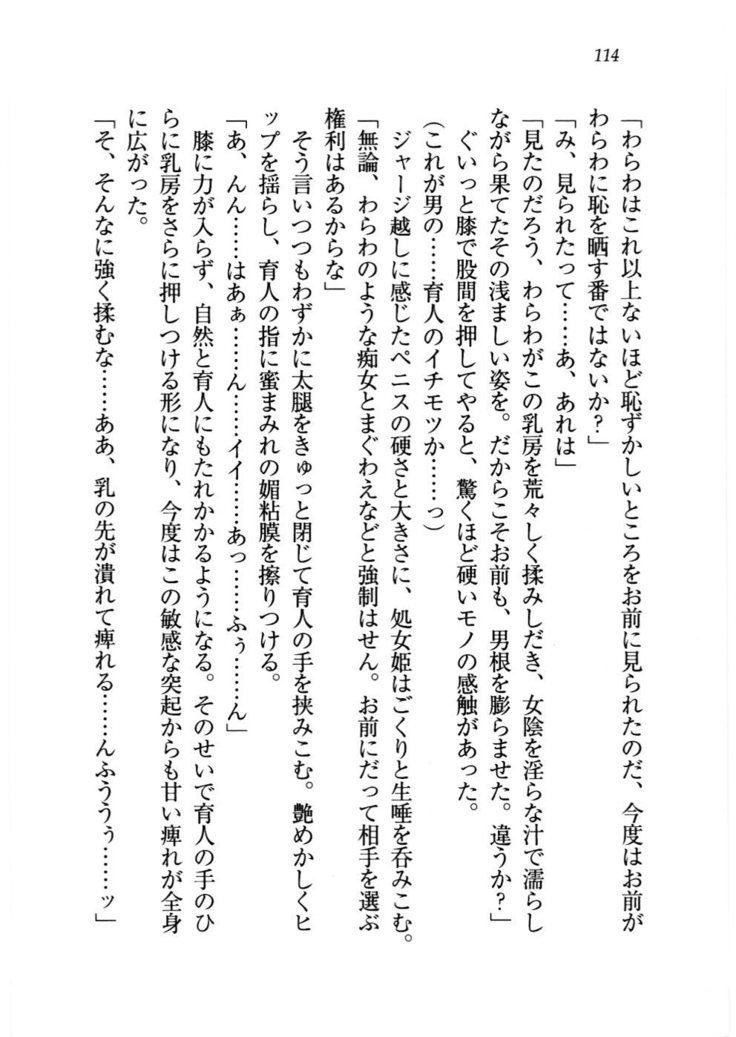 114
「わらわはこれ以上ないほど恥ずかしいところをお前に見られたのだ、今度はお前が
わらわに恥を晒す番ではないか？」
「み、見られたって……あ、あれは」
「見たのだろう、わらわがこの乳房を荒々しく揉みしだき、女陰を淫らな汁で濡らし
ながら果てたその浅ましい姿を。だからこそお前も、男根を膨らませた。違うか？」
ぐいっと膝で股間を押してやると、驚くほど硬いモノの感触があった。
（これが男の……育人のイチモツか……っ）
ジャージ越しに感じたペニスの硬さと大きさに、処女姫はごくりと生唾を呑みこむ。
「無論、わらわのような痴女とまぐわえなどと強制はせん。お前にだって相手を選ぶ
権利はあるからな」
そう言いつつもわずかに太腿をきゅっと閉じて育人の手を挟みこむ。艶めかしくヒ
ップを揺らし、育人の指に蜜まみれの媚粘膜を擦りつける。
「あ、んん……はあぁ……ん……イイ……あっ……ふぅ……ん」
膝に力が入らず、自然と育人にもたれかかるようになる。そのせいで育人の手のひ
らに乳房をさらに押しつける形になり、今度はこの敏感な突起からも甘い痺れが全身
に広がった。
「そ、そんなに強く揉むな……ああ、乳の先が潰れて痺れる……んふううぅ……ッ」